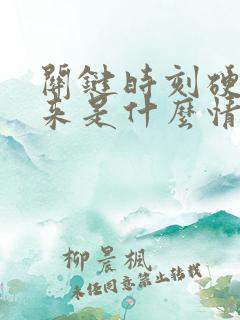 關鍵時刻硬
來是什麼情
柳晨楓
未經同意禁止轉載